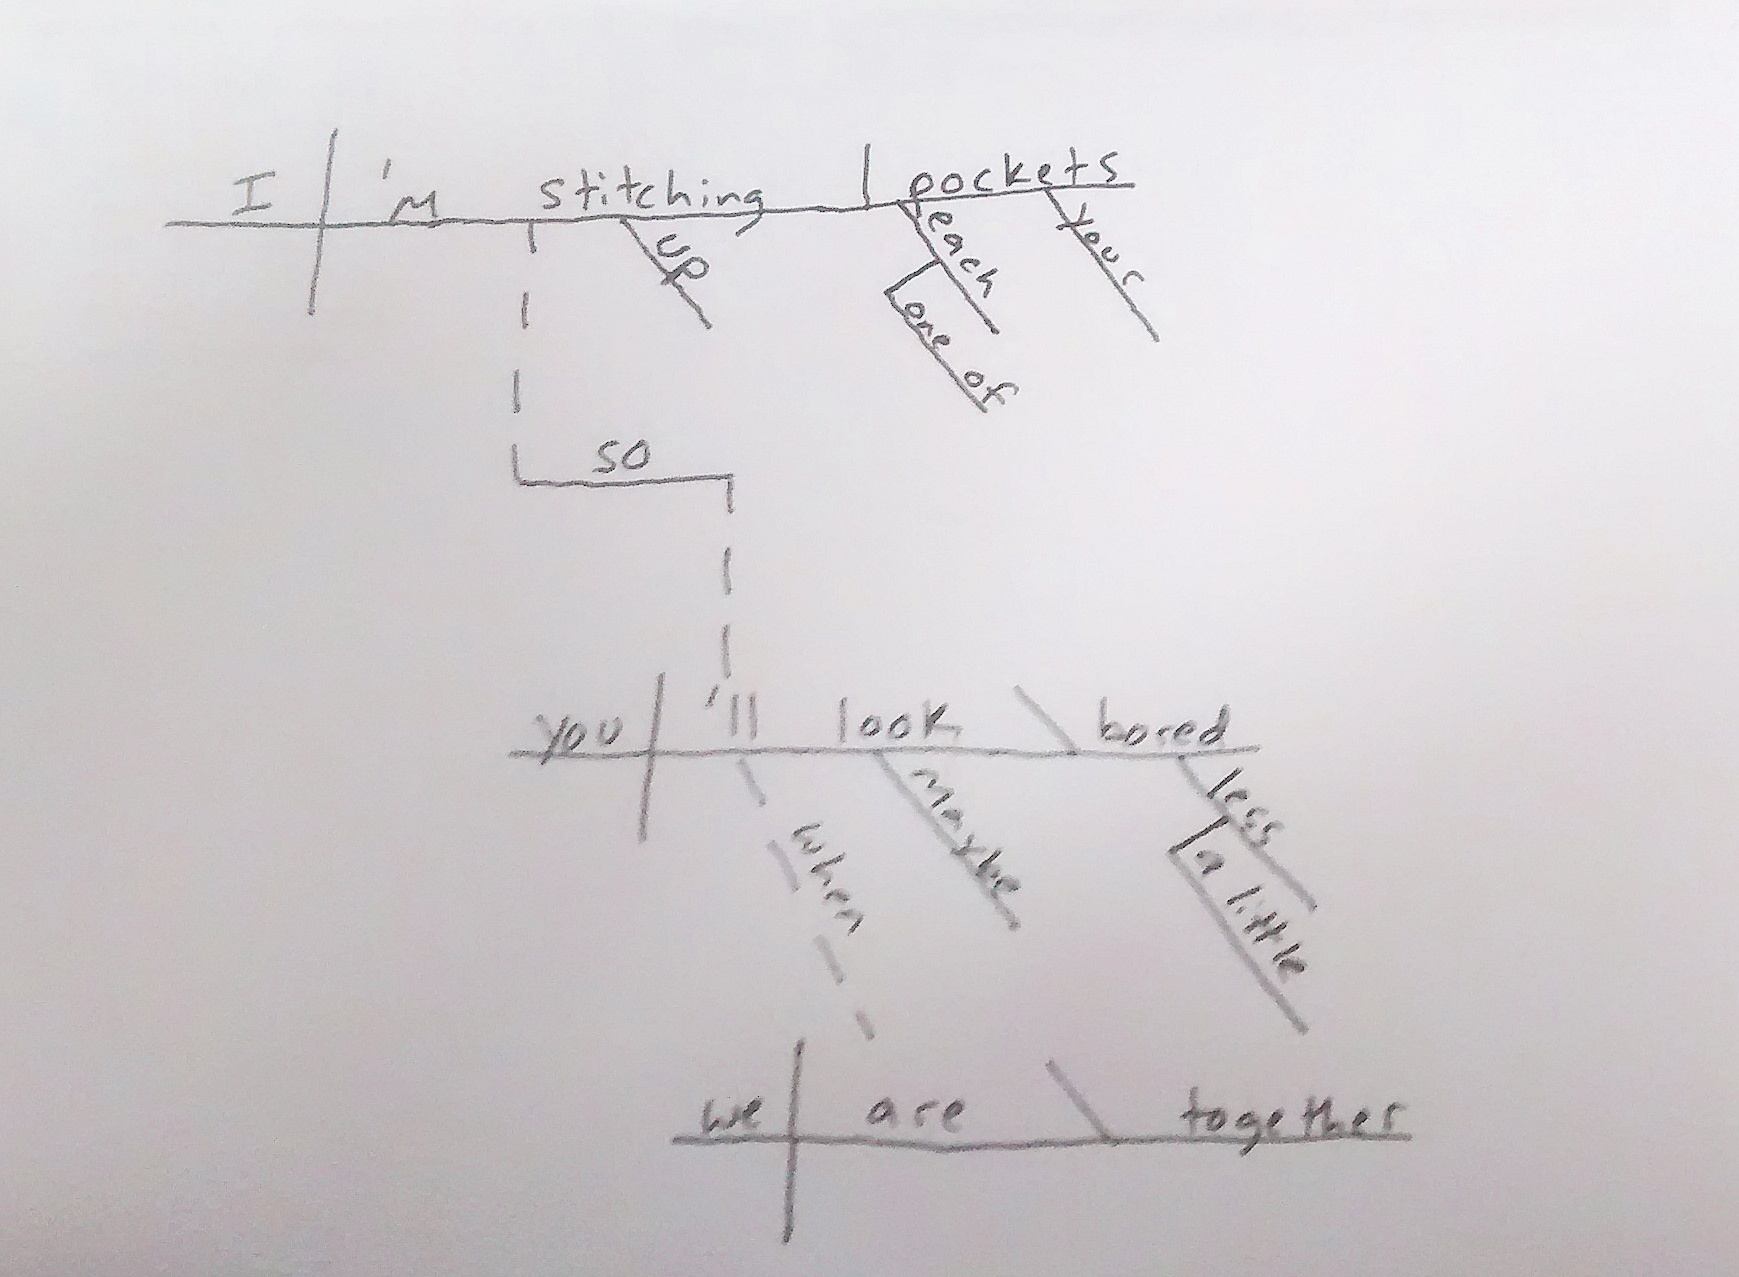 I 'm stitching pockets
up each your
one of
so
you 'll look bored
when maybe less
a little
we are together